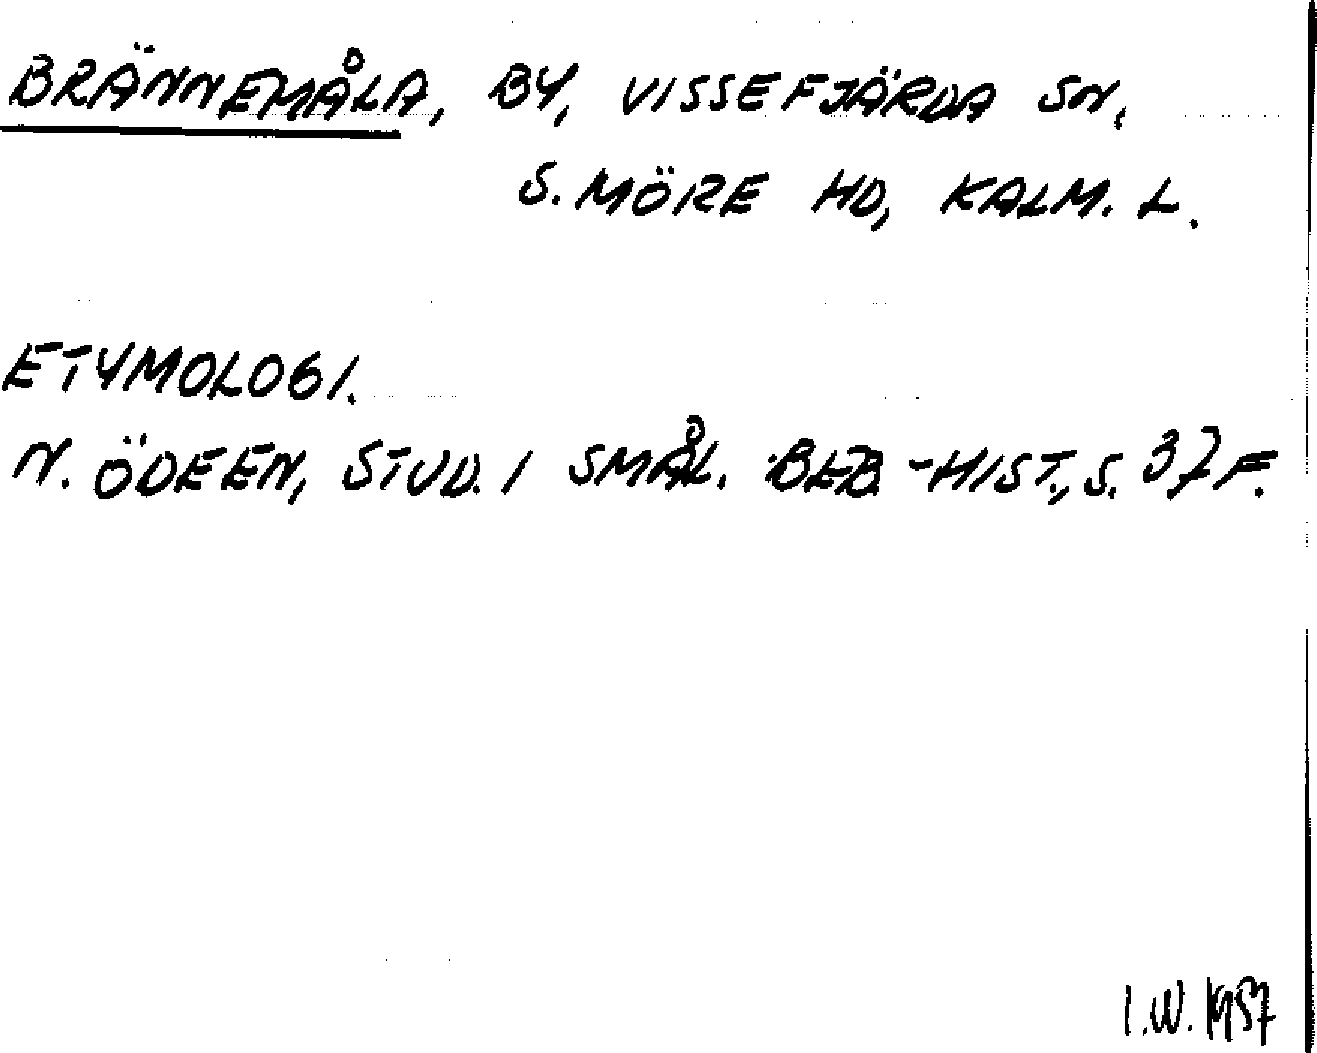 BRÄNNEMÅLA, BY, VISSEFJÄRDA SN,
S. MÖRE HD, KALM. L.
ETYMOLOGI.
N. ÖDEEN, STUD. I SMÅL. BEB.-HIST., S. 37 F.
I.W. 1957